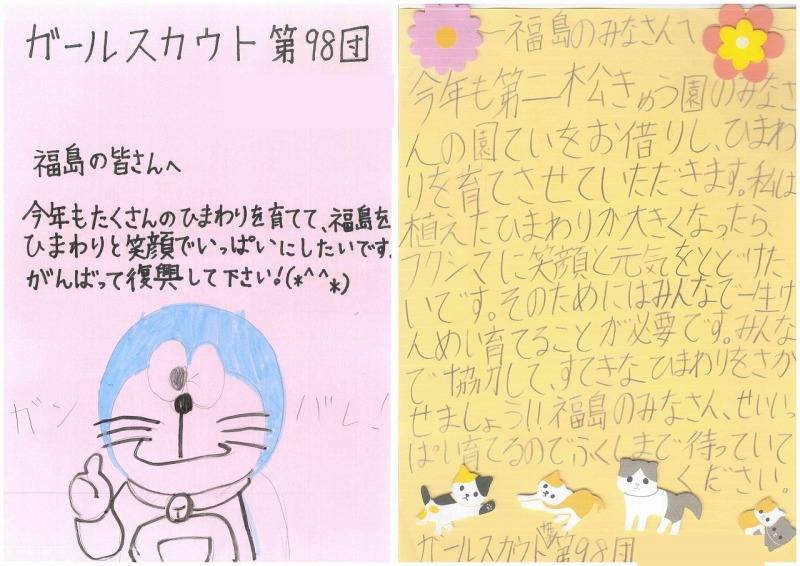 ガールスカウト第98団
福島の皆さんへ
今年もたくさんのひまわりを育てて、福島を
ひまわりと笑顔でいっぱいにしたいです。
がんばって復興して下さい!(*^^*)
ガンバレ!
～福島のみなさんへ
今年も第二松きゅう園のみなさ
んの園ていをお借りし、ひまわ
りを育てさせていただきます。私は
植えたひまわりが大きくなったら、
フクシマに笑顔と元気をとどけた
いです。そのためにはみんなで一生け
んめい育てることが必要です。みんな
で協力して、すてきなひまわりをさか
せましょう!!福島のみなさん、せいいっ
ぱい育てるのでふくしまで待っていて
ください。
ガールスカウト第98団